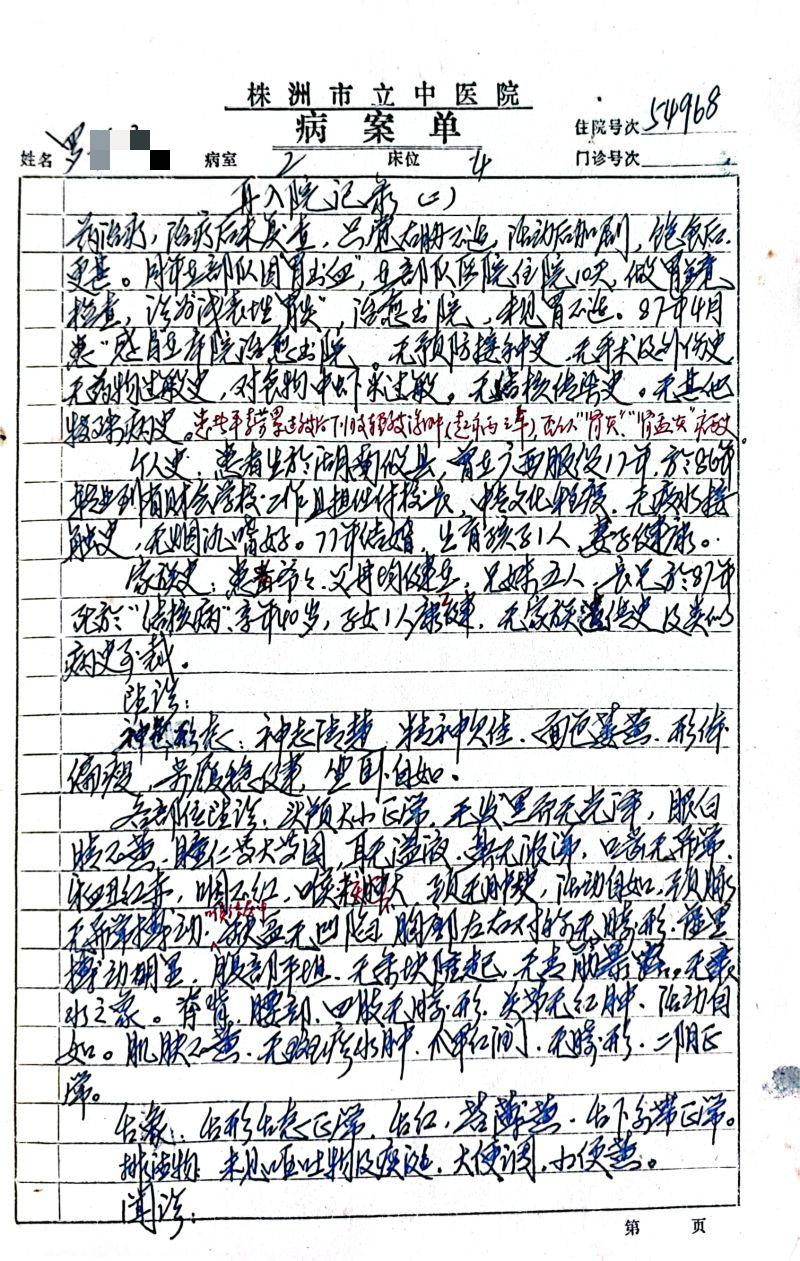 株洲市立中医院
病案单
住院号次 54968
姓名 罗 病室 2 床位 4 门诊号次
再入院记录(二)
药治疗,治疗后未复查,只觉右胁不适,活动后加剧,饱食后
更甚。同年在部队因“胃出血”,在部队医院住院10天,做胃镜
检查,诊为浅表性胃炎”,治愈出院,未见胃不适。87年4月
患“感冒在本院治愈出院。无预防接种史,无手术及外伤史,
无药物过敏史,对食物中虾米过敏。无结核传染史。无其他
特殊病史。
个人史:患者生于湖南攸县,曾在广西服役17年,于86年
转业到省财会学校工作且担任付校长,中专文化程度,无疫水接
触史,无烟酒嗜好。77年结婚,生育孩子1人,妻子健康。
家族史:父母均健在,兄妹五人,长兄于87年
死于“结核病”,享年40岁,子女1人健康,无家族遗传史及类似
病史可载。
望诊:
神色形态:神志清楚,精神欠佳,面色萎黄,形体
偏瘦,步履稳健,坐卧自如。
各部位望诊:头颅大小正常,毛发黑而无光泽,眼白
睛不黄,瞳仁等大等圆,耳无溢液,鼻无液涕,口齿无异常,
咽不红,喉核 大,颈无肿块,活动自如,颈脉
无异常搏动,缺盆无凹陷,胸部左右对称无畸形,虚里
搏动明显,腹部平坦,无条块隆起,无青筋暴露。无
水之象。脊背、腰部、四肢无畸形,关节无红肿,活动自
如。肌肤不黄,无 水肿,爪甲红润,无畸形,二阴正
常。
舌象:舌形舌态正常,舌红,苔薄黄,舌下络带正常。
排泄物:未见呕吐物及痰涎,大便调,小便黄。
闻诊:
第 页